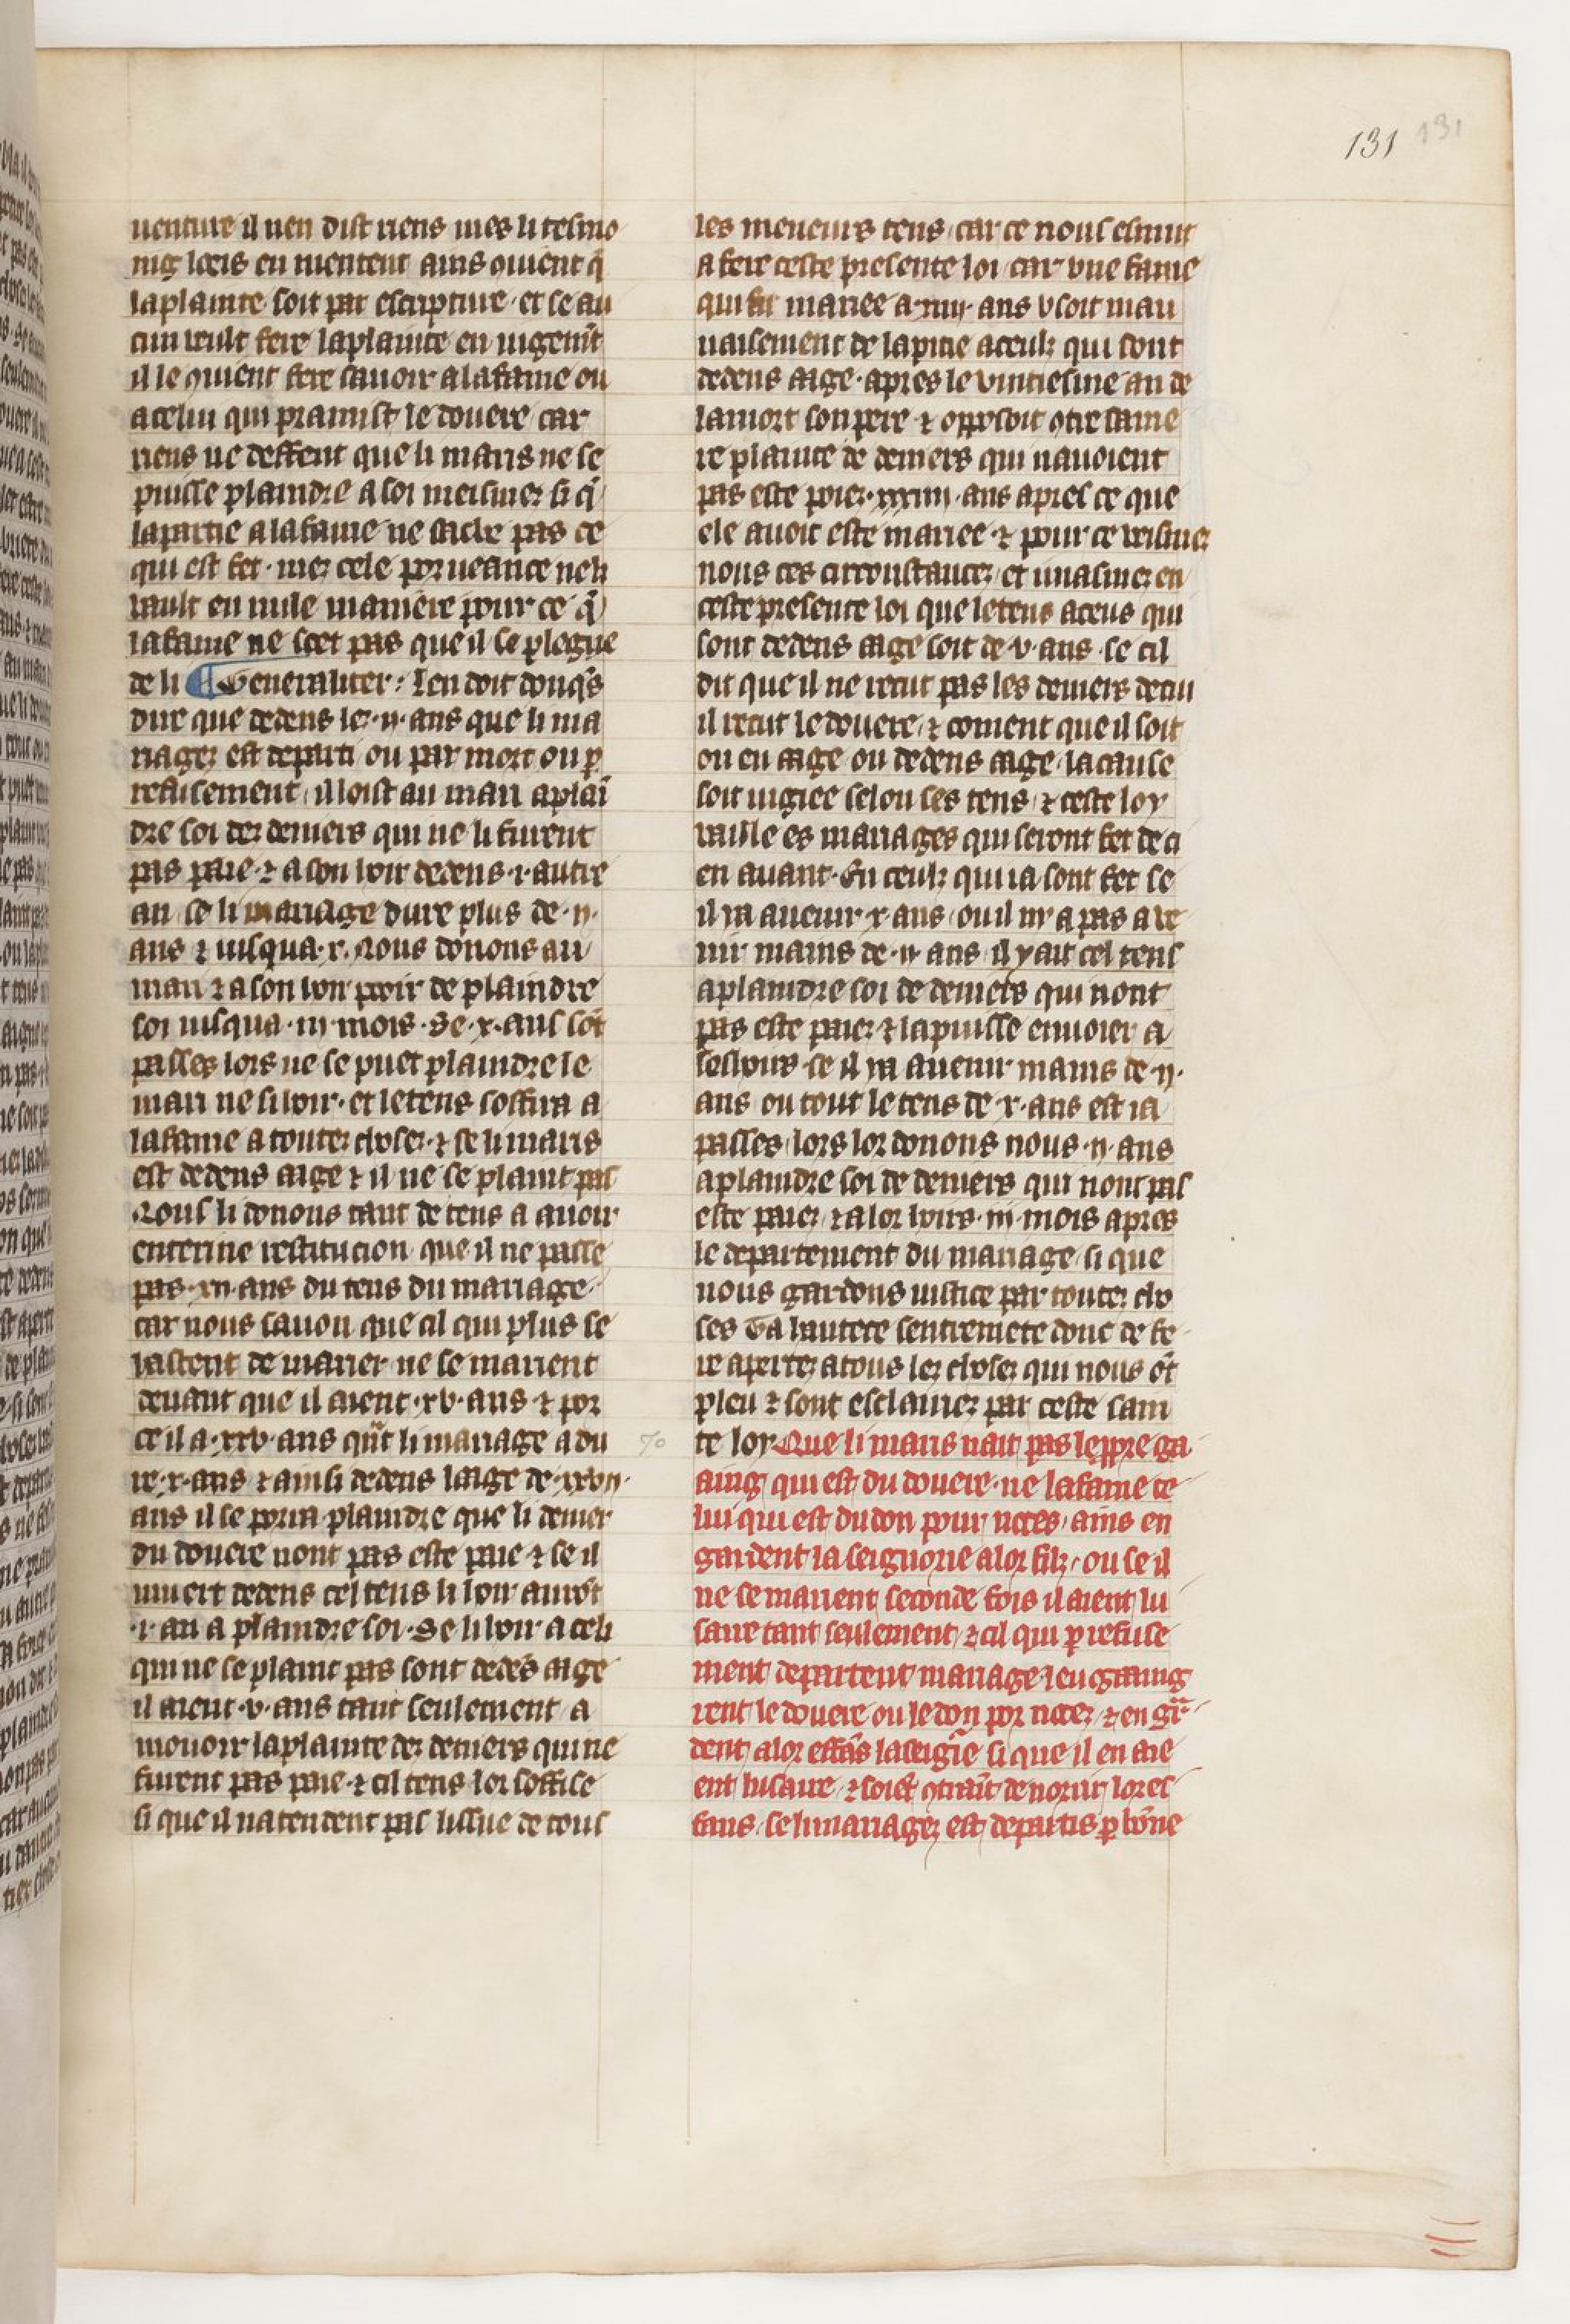 131 131
uenture il nen dist riens mes li tesmo
nig loeis en mentent ains 9uient q̃
laplainte soit par escripture · et se au
cun ueult fere laplainte en iugem̃t
il le 9uient fere sauoir alafame ou
acelui qui pramist le douere car
riens ne deffent que li maris ne se
puisse plaindre a soi meismez si q̃
lapartie alafame ne sache pas ce
qui est fet · mez cele porueance neli
uault en nule maniere pour ce q̃
lafame ne scet pas que il se plegne
de li ¶ Generaliter: Len doit donq̃s
dire que dedens lez · ii · ans que li ma
riagez est departi ou par mort ou p
refusement / il loist au mari aplaĩ
dre soi dez deniers qui ne li furent
pas paie · ⁊ a son hoir dedens · i · autre
an / se li mariage dure plus de · ii ·
ans ⁊ iusqua · x · Nous donons au
mari ⁊ a son hoir pooir de plaindre
soi iusqua · iii · mois · Se · x · ans sõt
passes lors ne se puet plaindre le
mari ne si hoir · et letens soffira a
lafame a toutez chosez · ⁊ se li maris
est dedens aage ⁊ il ne se plaint pas
Nous li donons tant de tens a auoir
enterine restitucion que il ne passe
pas · xii · ans du tens du mariage
car nous sauon que cil qui plus se
hastent de marier ne se marient
deuant que il aient · xv · ans ⁊ por
ce il a · xxv · ans qũt li mariage a du
re · x · ans ⁊ ainsi dedens laage de · xxvii ·
ans il se porra plaindre que li denier
du douere nont pas este paie ⁊ se il
muert dedens cel tens li hoir aurõt
· i · an a plaindre soi · Se li hoir a celi
qui ne se plaint pas sont dedẽs aage
il aient · v · ans tant seulement a
mouoir laplainte dez deniers qui ne
furent pas paie · ⁊ cil tens lor soffise
si que il natendent pas lissue de tous
les meneurs tens / car ce nous esmut
a fere ceste presente loi / car vne fame
qui fu mariee a · xiiii · ans vsoit mau
uaisement de lapitie aceulz qui sont
dedens aage · apres le vintiesme an de
lamort son pere ⁊ opposoit 9tre same
re plainte de deniers qui nauoient
pas este poiez · xxxiiii · ans apres ce que
ele auoit este mariee · ⁊ pour ce veismez
nous ces circonstancez / et vnasmez en
ceste presente loi que letens aceus qui
sont dedens aage soit de · v · ans · se cil
dit que il ne recut pas les deniers decui
il recut le douere / ⁊ coment que il soit
ou en aage ou dedens aage / lacause
soit iugiee selon ses tens / ⁊ ceste loy
vaille es mariages qui seront fet de ci
en auant · En ceulz qui ia sont fet se
il i a auenir · x · ans / ou il ni a pas a ve
nir mains de · ii · ans / il y ait cel tens
aplaindre soi de deniers qui nont
pas este paiez ⁊ lapuisse enuoier a
ses hoirs · se il i a auenir mains de · ii ·
ans ou tout letens de · x · ans est ia
passes / lors lor donons nous · ii · ans
aplaindre soi de deniers qui nont pas
este paiez / ⁊ alor hoirs · iii · mois apres
le departement du mariage / si que
nous gardons iustice par toutez cho
ses Ta hautece sentremete donc de fe
re apertez atous lez chosez qui nous õt
pleu ⁊ sont esclairiez par ceste sain
70
te loy Que li maris nait pas le ppre ga
aing qui est du douere · ne lafame ce
lui qui est dudon pour noces / ains en
gardent la seignorie alor filz / ou se il
ne se marient seconde fois il aient lu
saire tant seulement / ⁊ cil qui p refuse
ment departent mariage / leu gaaing
rent le douere ou le don por nocez / ⁊ en gr̃
dent alor effãs laseigñie si que il en aie
ent lusaire / ⁊ soiẽt 9traĩt de norrir lor es
fans / se li mariagez est departis p bõne